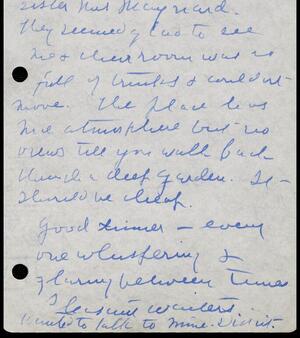 sister Mrs Maynard.
They seemed glad to see
me & their room was so
full of trunks I couldn't
move. The place has
nice atmosphere but no
views till you walk back
through a deep garden. It
should be cheap.
Good dinner — every
one whispering &
glaring between times
Pleasant waiters.
Wanted to talk to mine. Didn't.